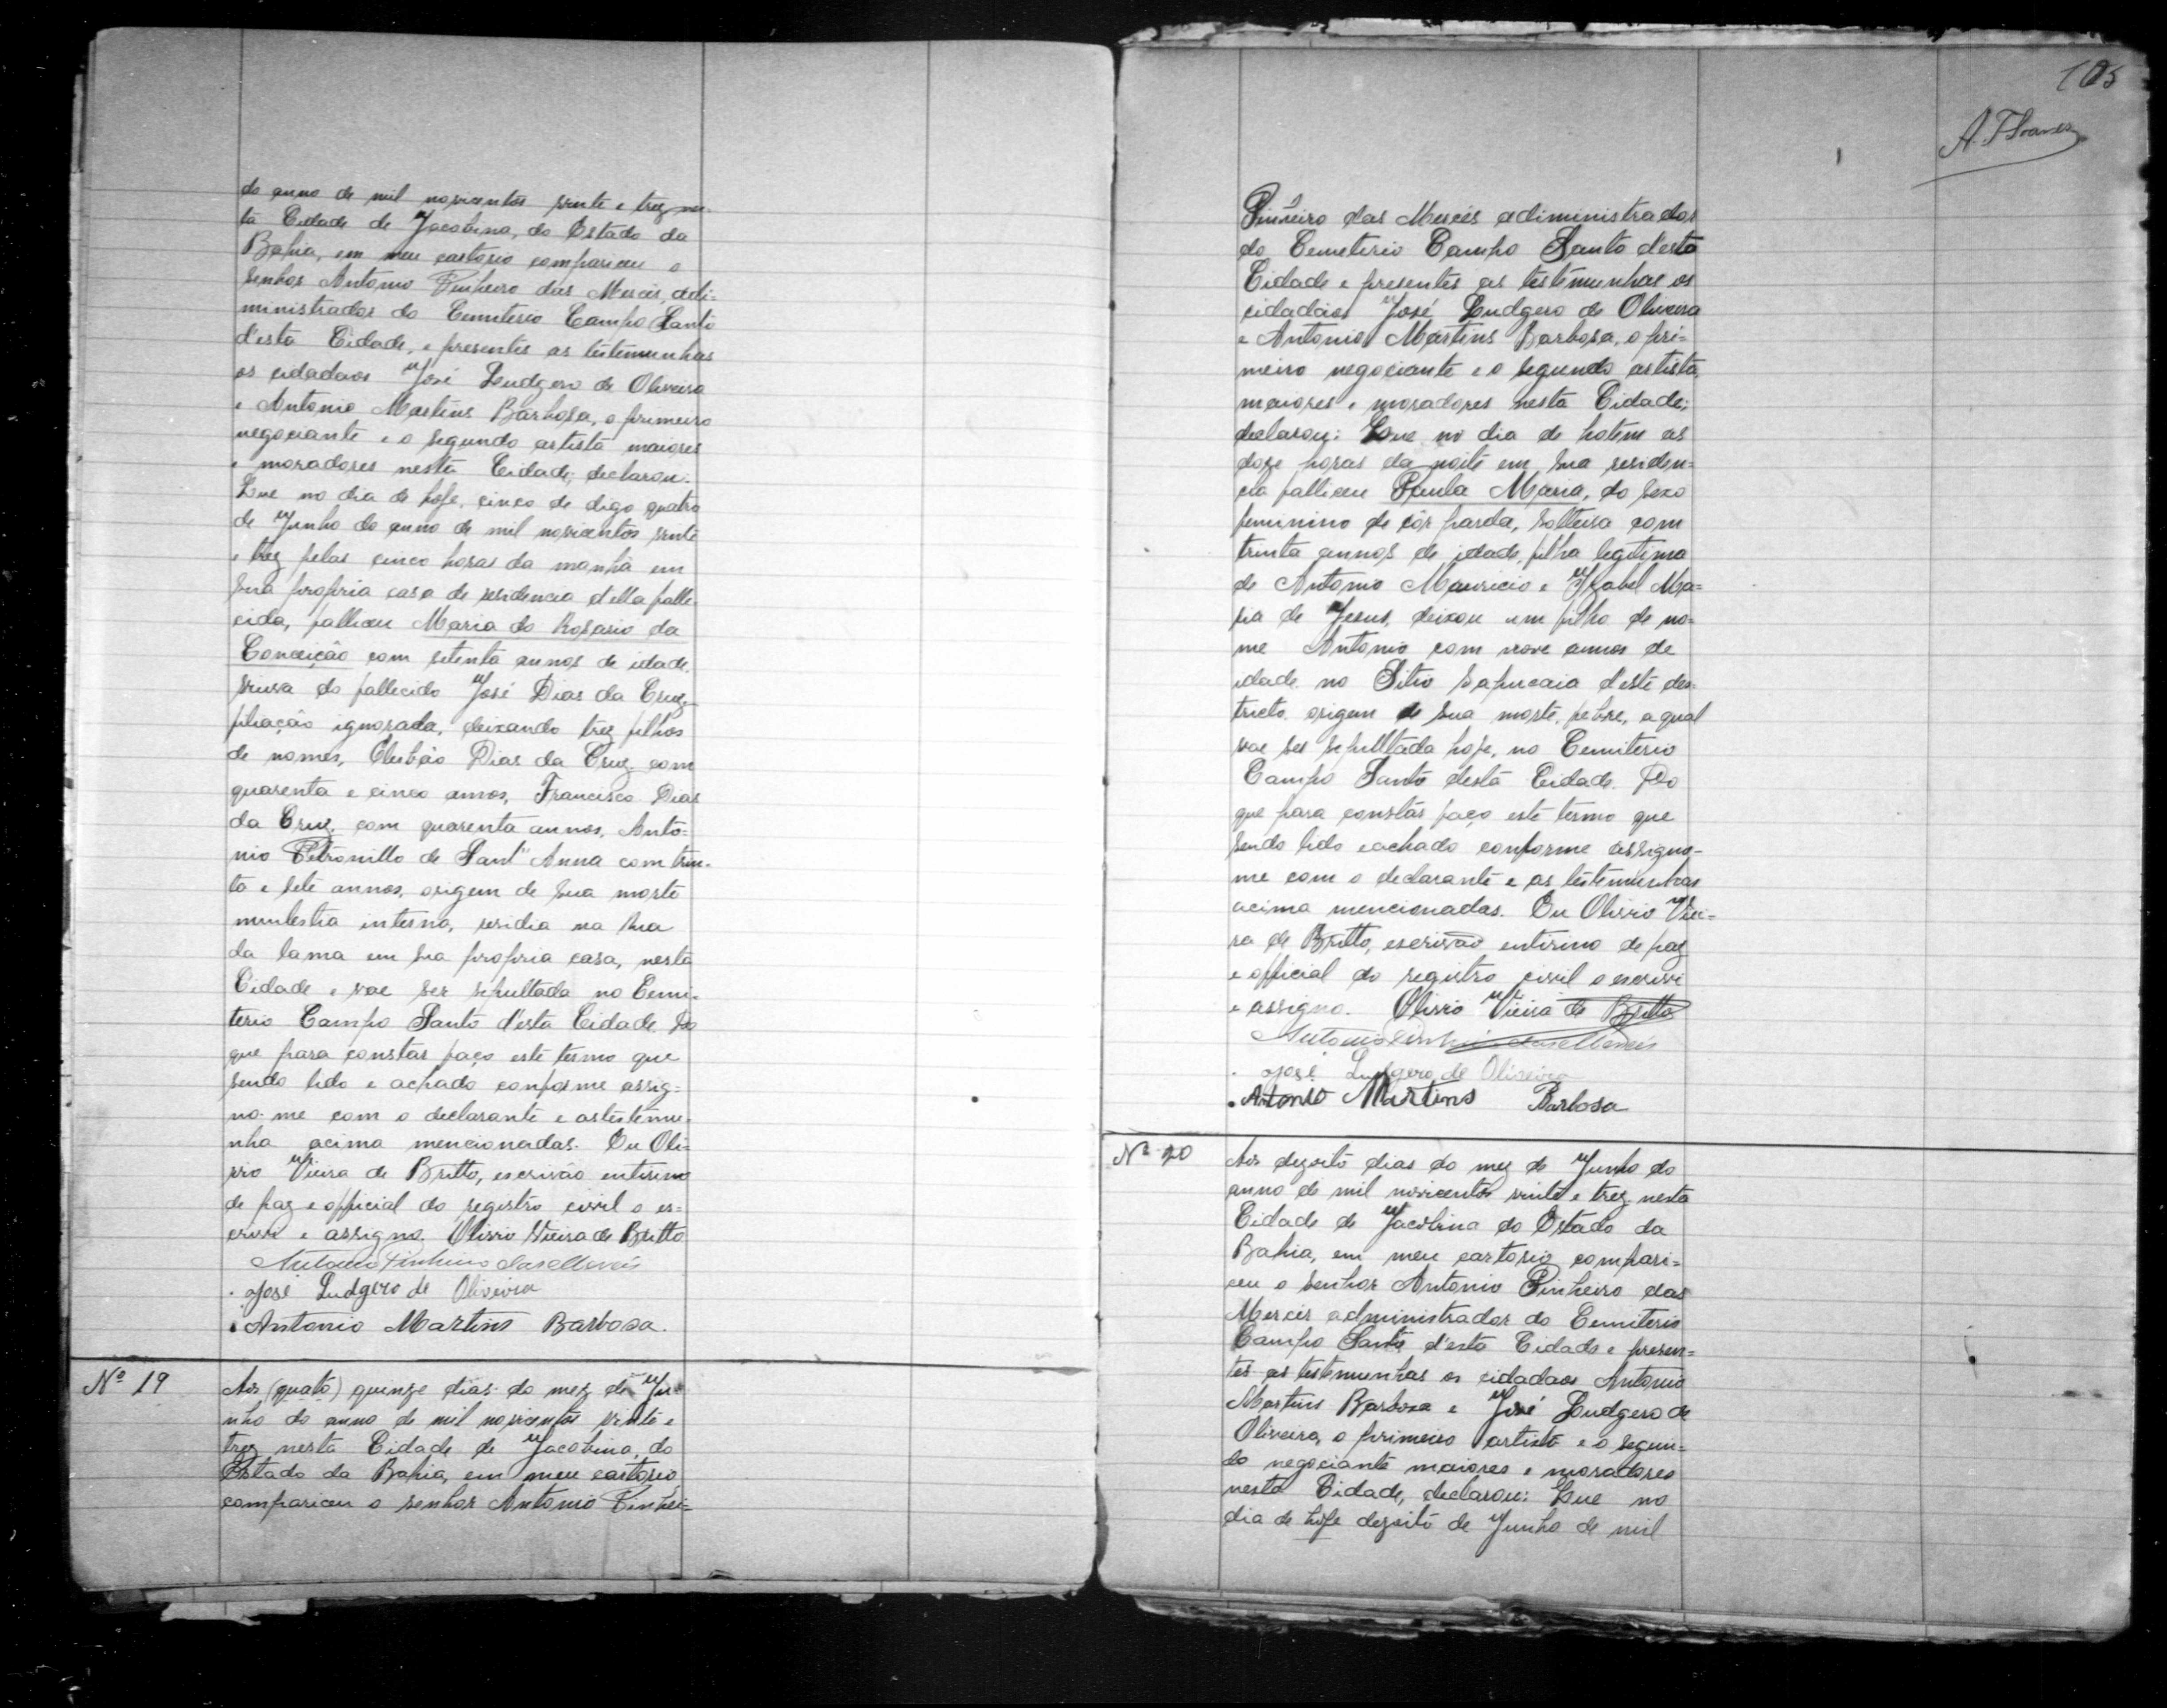 do anno de mil novicentos vinte e trez nes-
ta Cidade de Jacobina, do Estado da
Bahia, em meu cartorio compariceu o
senhor Antonio Pinheiro das Mercês, adi-
ministrador do Cemiterio Campo Santo
d'esta Cidade, e presentes as testemunhas
os cidadaos José Ludgero de Oliveira
e Antonio Martins Barbosa, o primeiro
negociante e o segundo artista maiores
e moradores nesta Cidade; declarou:
Que no dia de hoje, cinco de digo quatro
de Junho do anno de mil novicentos vinte
e trez pelas cinco horas da manhã em
sua propria casa de residencia d'ella falle-
cida, falliceu Maria do Rosario da
Conceição com setenta annos de idade,
viuva do fallecido José Dias da Cruz,
filiação ignorada, deixando trez filhos
de nomes, Dias da Cruz, com
quarenta e cinco annos, Francisco Dias
da Cruz, com quarenta annos, Anto-
nio Petronillo de Sant'Anna com trin-
ta e sete annos, origem de sua morte
mulestia interna, residia na Rua
da lama em sua propria casa, nesta
Cidade e vae ser sipultada no Cemi-
terio Campo Santo d'esta Cidade. Do
que para constar faço este termo que
sendo lido e achado conforme assig-
no-me com o declarante e as testemu-
nha acima mencionadas. Eu Oli-
vio Vieira de Britto, escrivão entirino
de paz e official do registro civil o es-
crivi e assigno. Olivio Vieira de Britto
Antonio Pinheiro das Mercês
José Ludgero de Oliveira
Antonio Martins Barbosa.
Nº 19
Aos (quato) quinze dias do mez de Ju-
nho do anno de mil novicentos vinte e
trez nesta Cidade de Jacobina, do
Estado da Bahia, em meu cartorio
compariceu o senhor Antonio Pinhei-
105
A. F. Soares
Pinheiro das Mercês adiministrador
do Cemeterio Campo Santo desta
Cidade e presentes as testemunhas os
cidadaos José Ludgero de Oliveira
e Antonio Martins Barbosa, o pri-
meiro negociante e o segundo artista,
maiores e moradores nesta Cidade;
declarou: Que no dia de hotem as
doze horas da noite em sua residen-
cia falliceu Paula Maria, do sexo
feminino de côr parda, solteira com
trinta annos de idade, filha legitima
de Antonio Mauricio e Izabel Ma-
ria de Jesus, deixou um filho de no-
me Antonio com nove annos de
idade no Sitio Sapucaia d'este des-
tricto, origem de sua morte, febre, a qual
vae ser sepulltada hoje, no Cemiterio
Campo Santo desta Cidade. Do
que para constar faço este termo que
sendo lido e achado conforme assigno-
me com o declarante e as testemunhas
acima mencionadas. Eu Olivio Viei-
ra de Britto, escrivão entirino de paz
e official do registro civil o escrivi
e assigno. Olivio Vieira de Britto
Antonio Pinheiro das Mercês
José Ludgero de Oliveira
Antonio Martins Barbosa
Nº 20
Aos dezoito dias do mez de Junho do
anno de mil novicentos vinte e trez, nesta
Cidade de Jacobina do Estado da
Bahia, em meu cartorio compari-
ceu o senhor Antonio Pinheiro das
Mercês administrador do Cemiterio
Campo Santo d'esta Cidade e presen-
tes as testemunhas os cidadaos Antonio
Martins Barbosa e José Ludgero de
Oliveira, o primeiro artista e o segun-
do negociante maiores e moradores
nesta Cidade, declarou: Que no
dia de hoje dezoito de Junho de mil